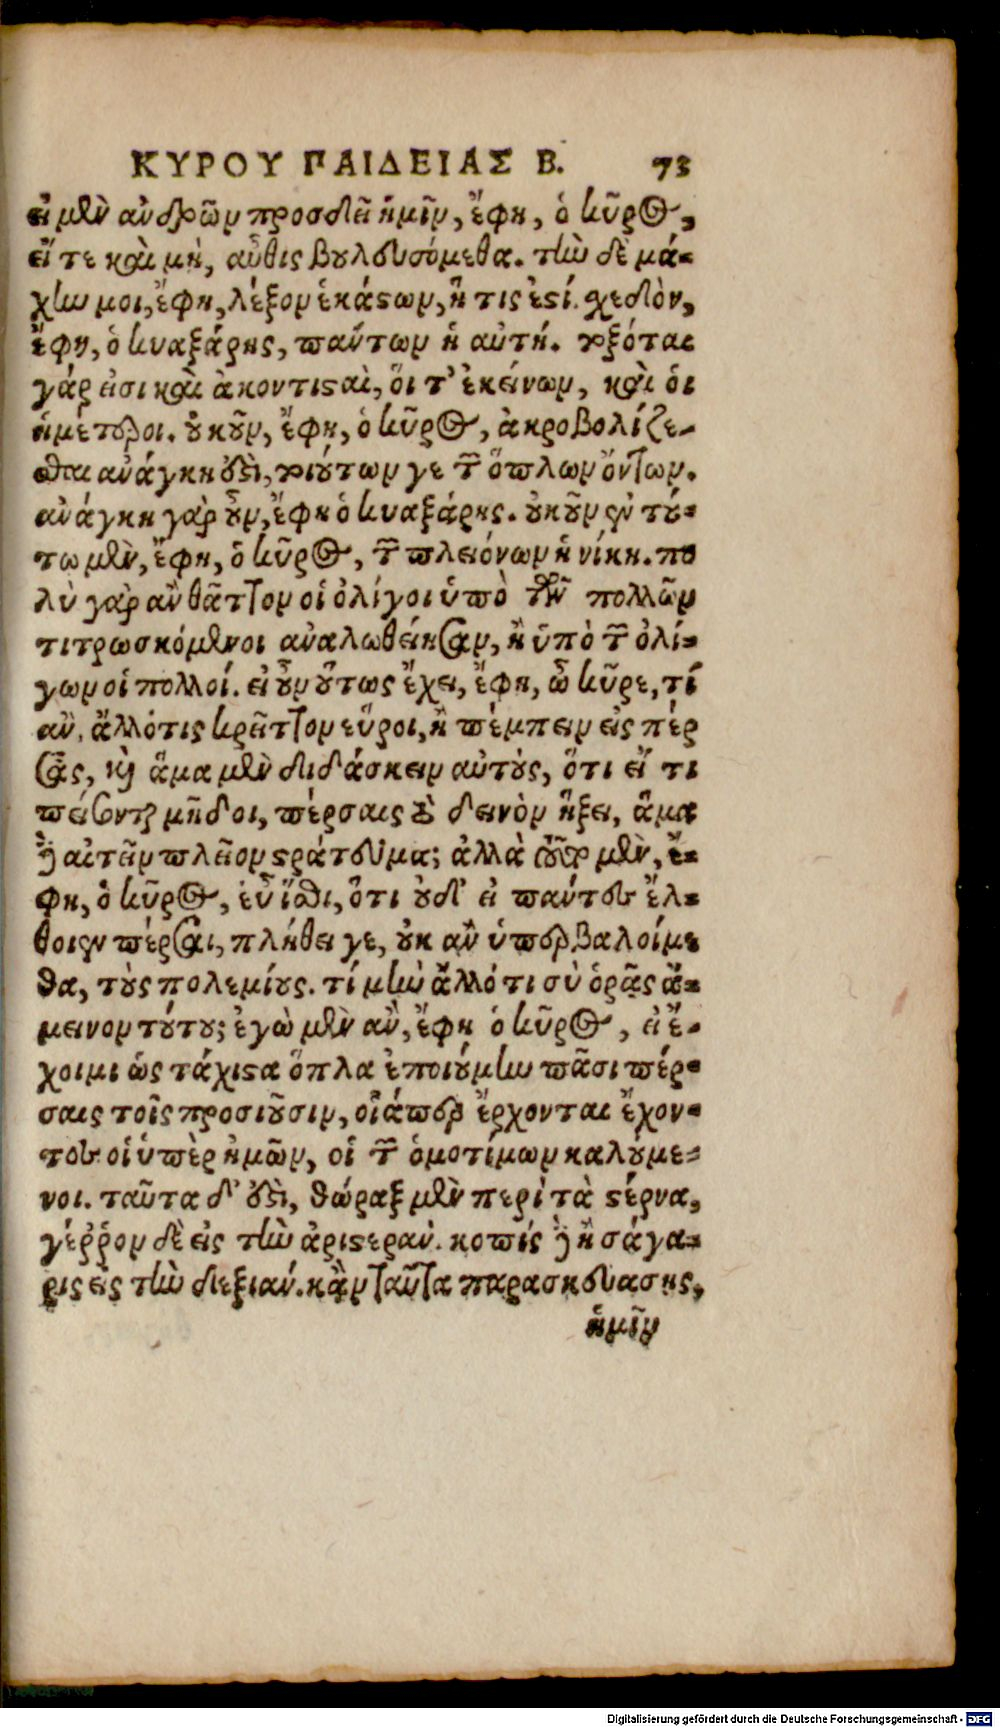 ΚΥΡΟΥ ΠΑΙΔΕΙΑΣ Β. 73
εἰ μὲν ἀνδρῶν προσδεῖ ἡμῖν, ἔφη, ὁ κῦρος,
εἴτε καὶ μὴ, αὖθις βουλευσόμεθα. τὴν δὲ μά-
χην μοι, ἔφη, λέξον ἑκάστων, ἥ τις ἐστί. σχεδὸν,
ἔφη, ὁ κυαξάρης, πάντων ἡ αὐτή. τοξόται
γάρ εἰσι καὶ ἀκοντισταὶ, ὅι τ' ἐκείνων, καὶ ὁι
ἡμέτεροι. οὐκοῦν, ἔφη, ὁ κῦρος, ἀκροβολίζε-
σθαι ἀνάγκη ἐστὶ, τοιούτων γε τῶν ὅπλων ὄντων.
ἀνάγκη γὰρ οὖν, ἔφη ὁ κυαξάρης. οὐκοῦν ἐν τού-
τω μὲν, ἔφη, ὁ κῦρος, τῶν πλειόνων ἡ νίκη. πο
λὺ γὰρ ἂν θᾶττον οἱ ὀλίγοι ὑπὸ τῶν πολλῶν
τιτρωσκόμενοι ἀναλωθείησαν, ἢ ὑπὸ τῶν ὀλί-
γων οἱ πολλοί. εἰ οὖν οὕτως ἔχει, ἔφη, ὦ κῦρε, τί
ἂν, ἄλλό τις κρεῖττον εὕροι, ἢ πέμπειν εἰς πέρ
σας, καὶ ἅμα μὲν διδάσκειν αὐτοὺς, ὅτι εἴ τι
πείσονται μῆδοι, πέρσαις τὸ δεινὸν ἥξει, ἅμα
δὲ αἰτεῖν πλεῖον στράτευμα; ἀλλὰ τοῦτο μὲν, ἔ-
φη, ὁ κῦρος, εὖ ἴσθι, ὅτι οὐδ' εἰ πάντες ἔλ-
θοιεν πέρσαι, πλήθει γε, οὐκ ἂν ὑπερβαλοίμε
θα, τοὺς πολεμίους. τί μὴν ἄλλό τι σὺ ὁρᾷς ἄ-
μεινον τούτου; ἐγὼ μὲν ἂν, ἔφη ὁ κῦρος, εἰ ἔ-
χοιμι ὡς τάχιστα ὅπλα ἐποιούμην πᾶσι πέρ-
σαις τοῖς προσιοῦσιν, οἷάπερ ἔρχονται ἔχον-
τες οἱ ὑπὲρ ἡμῶν, οἱ τῶν ὁμοτίμων καλούμε-
νοι. ταῦτα δ' ἐστὶ, θώραξ μὲν περὶ τὰ στέρνα,
γέῤῥον δὲ εἰς τὴν ἀριστεράν. κοπίς δὲ ἢ σάγα-
ρις εἰς τὴν δεξιάν. κἂν ταῦτα παρασκευάσῃς,
ἡμῖν
Digitalisierung gefördert durch die Deutsche Forschungsgemeinschaft - DFG